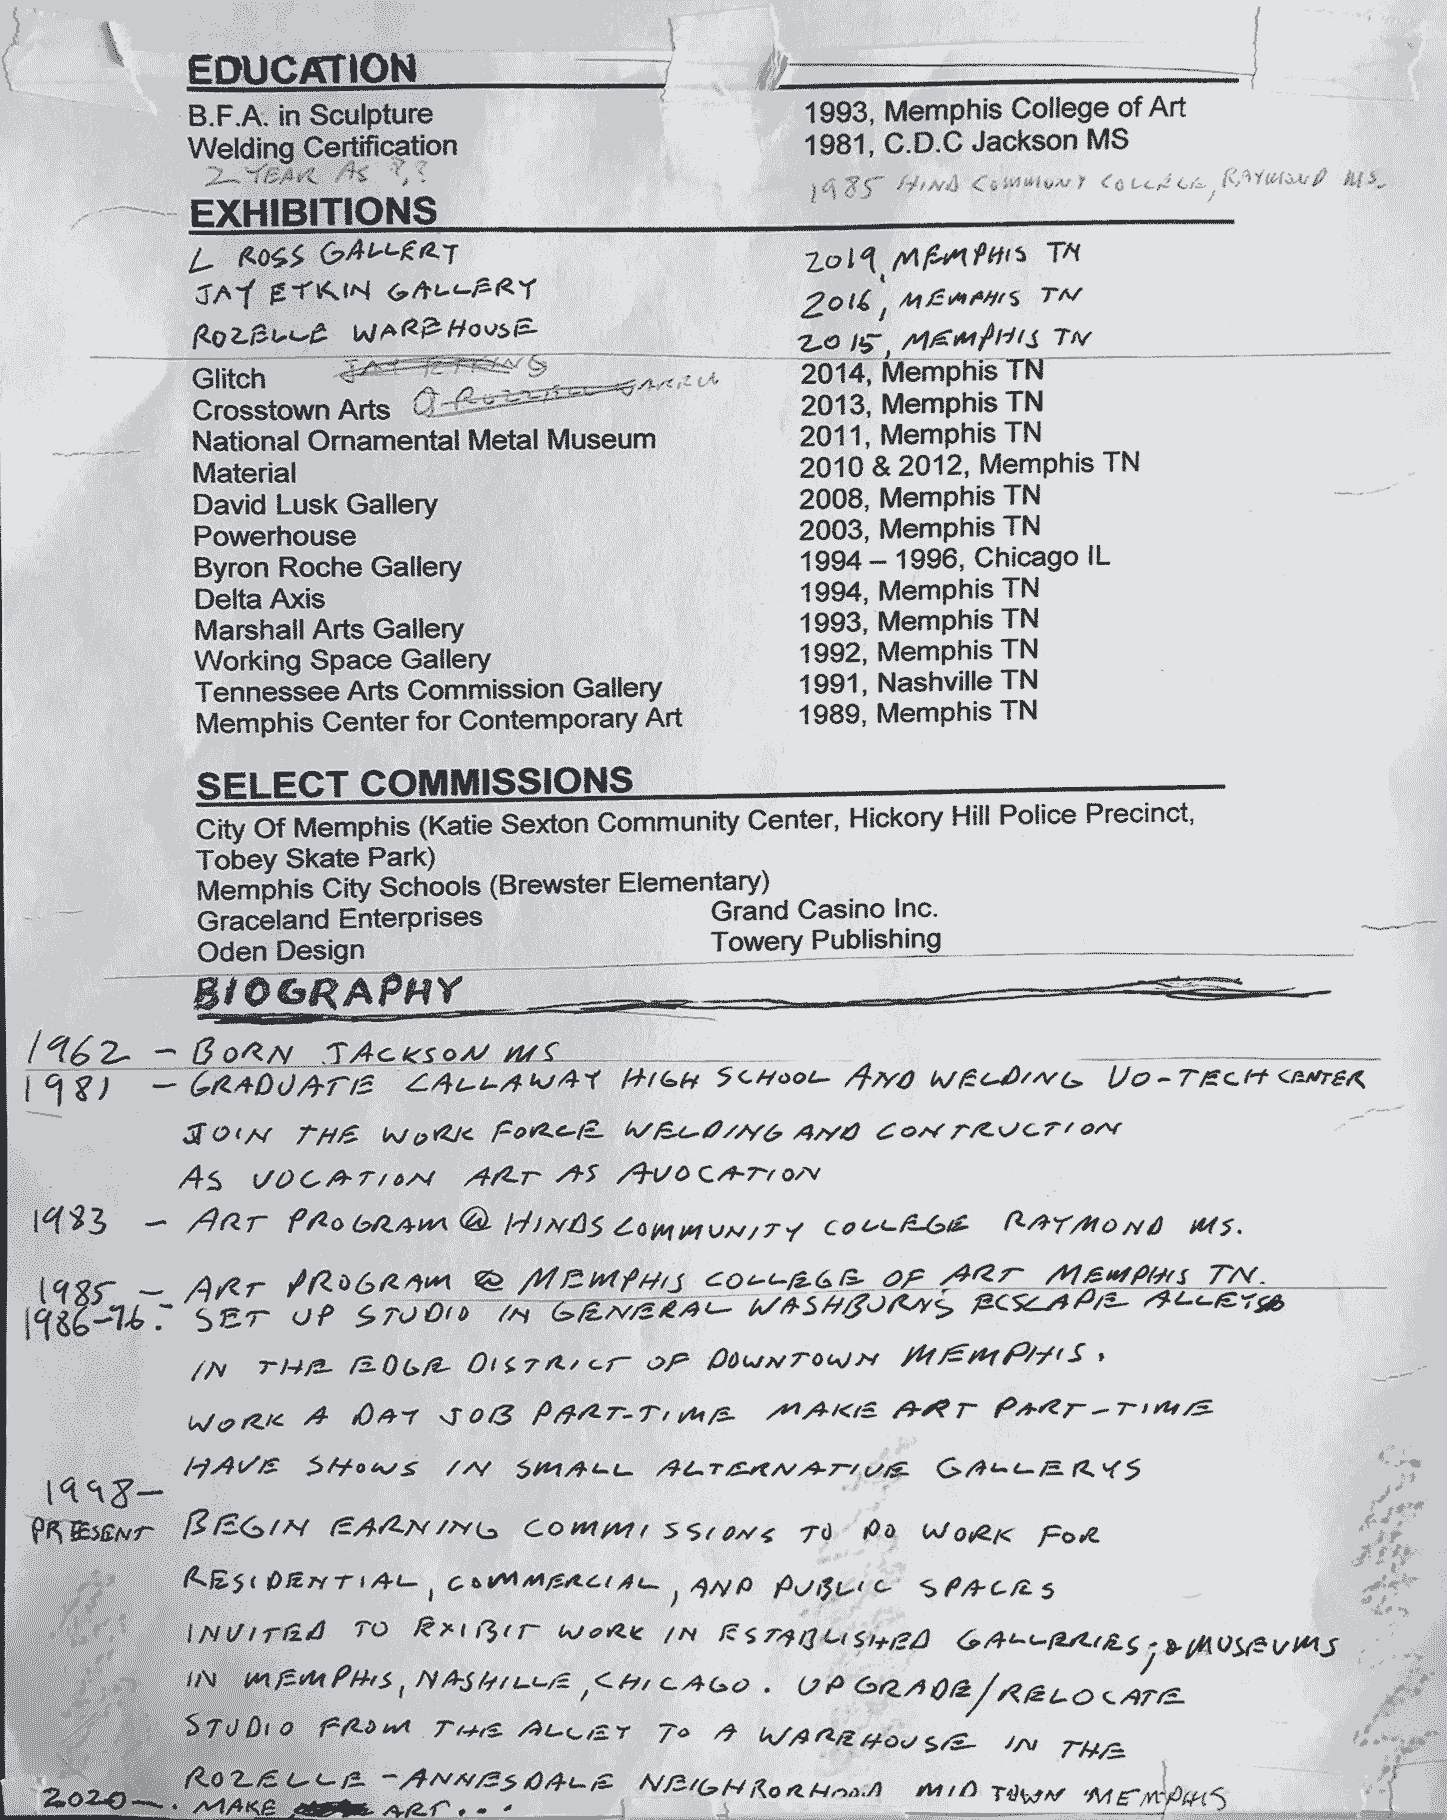 EDUCATION
B.F.A. in Sculpture 1993, Memphis College of Art
Welding Certification 1981, C.D.C Jackson MS
2 YEAR AS ?,? 1985 HIND COMMONY COLLEGE, RAYMOND MS.
EXHIBITIONS
L ROSS GALLERY 2019, MEMPHIS TN
JAY ETKIN GALLERY 2016, MEMPHIS TN
ROZELLE WAREHOUSE 2015, MEMPHIS TN
Glitch 2014, Memphis TN
Crosstown Arts 2013, Memphis TN
National Ornamental Metal Museum 2011, Memphis TN
Material 2010 & 2012, Memphis TN
David Lusk Gallery 2008, Memphis TN
Powerhouse 2003, Memphis TN
Byron Roche Gallery 1994 – 1996, Chicago IL
Delta Axis 1994, Memphis TN
Marshall Arts Gallery 1993, Memphis TN
Working Space Gallery 1992, Memphis TN
Tennessee Arts Commission Gallery 1991, Nashville TN
Memphis Center for Contemporary Art 1989, Memphis TN
SELECT COMMISSIONS
City Of Memphis (Katie Sexton Community Center, Hickory Hill Police Precinct,
Tobey Skate Park)
Memphis City Schools (Brewster Elementary)
Graceland Enterprises Grand Casino Inc.
Oden Design Towery Publishing
BIOGRAPHY
1962 – BORN JACKSON MS
1981 – GRADUATE CALLAWAY HIGH SCHOOL AND WELDING VO-TECH CENTER
JOIN THE WORK FORCE WELDING AND CONTRUCTION
AS VOCATION ART AS AVOCATION
1983 – ART PROGRAM @ HINDS COMMUNITY COLLEGE RAYMOND MS.
1985 – ART PROGRAM @ MEMPHIS COLLEGE OF ART MEMPHIS TN.
1986-96: SET UP STUDIO IN GENERAL WASHBURN'S ECSCAPE ALLEY
IN THE EDGE DISTRICT OF DOWNTOWN MEMPHIS.
WORK A DAY JOB PART-TIME MAKE ART PART-TIME
HAVE SHOWS IN SMALL ALTERNATIVE GALLERYS
1998–
PRESENT BEGIN EARNING COMMISSIONS TO DO WORK FOR
RESIDENTIAL, COMMERCIAL, AND PUBLIC SPACES
INVITED TO EXIBIT WORK IN ESTABLISHED GALLERIES; & MUSEUMS
IN MEMPHIS, NASHILLE, CHICAGO. UPGRADE/RELOCATE
STUDIO FROM THE ALLEY TO A WAREHOUSE IN THE
ROZELLE-ANNESDALE NEIGHRORHOOD MID TOWN MEMPHIS
2020–. MAKE ART...